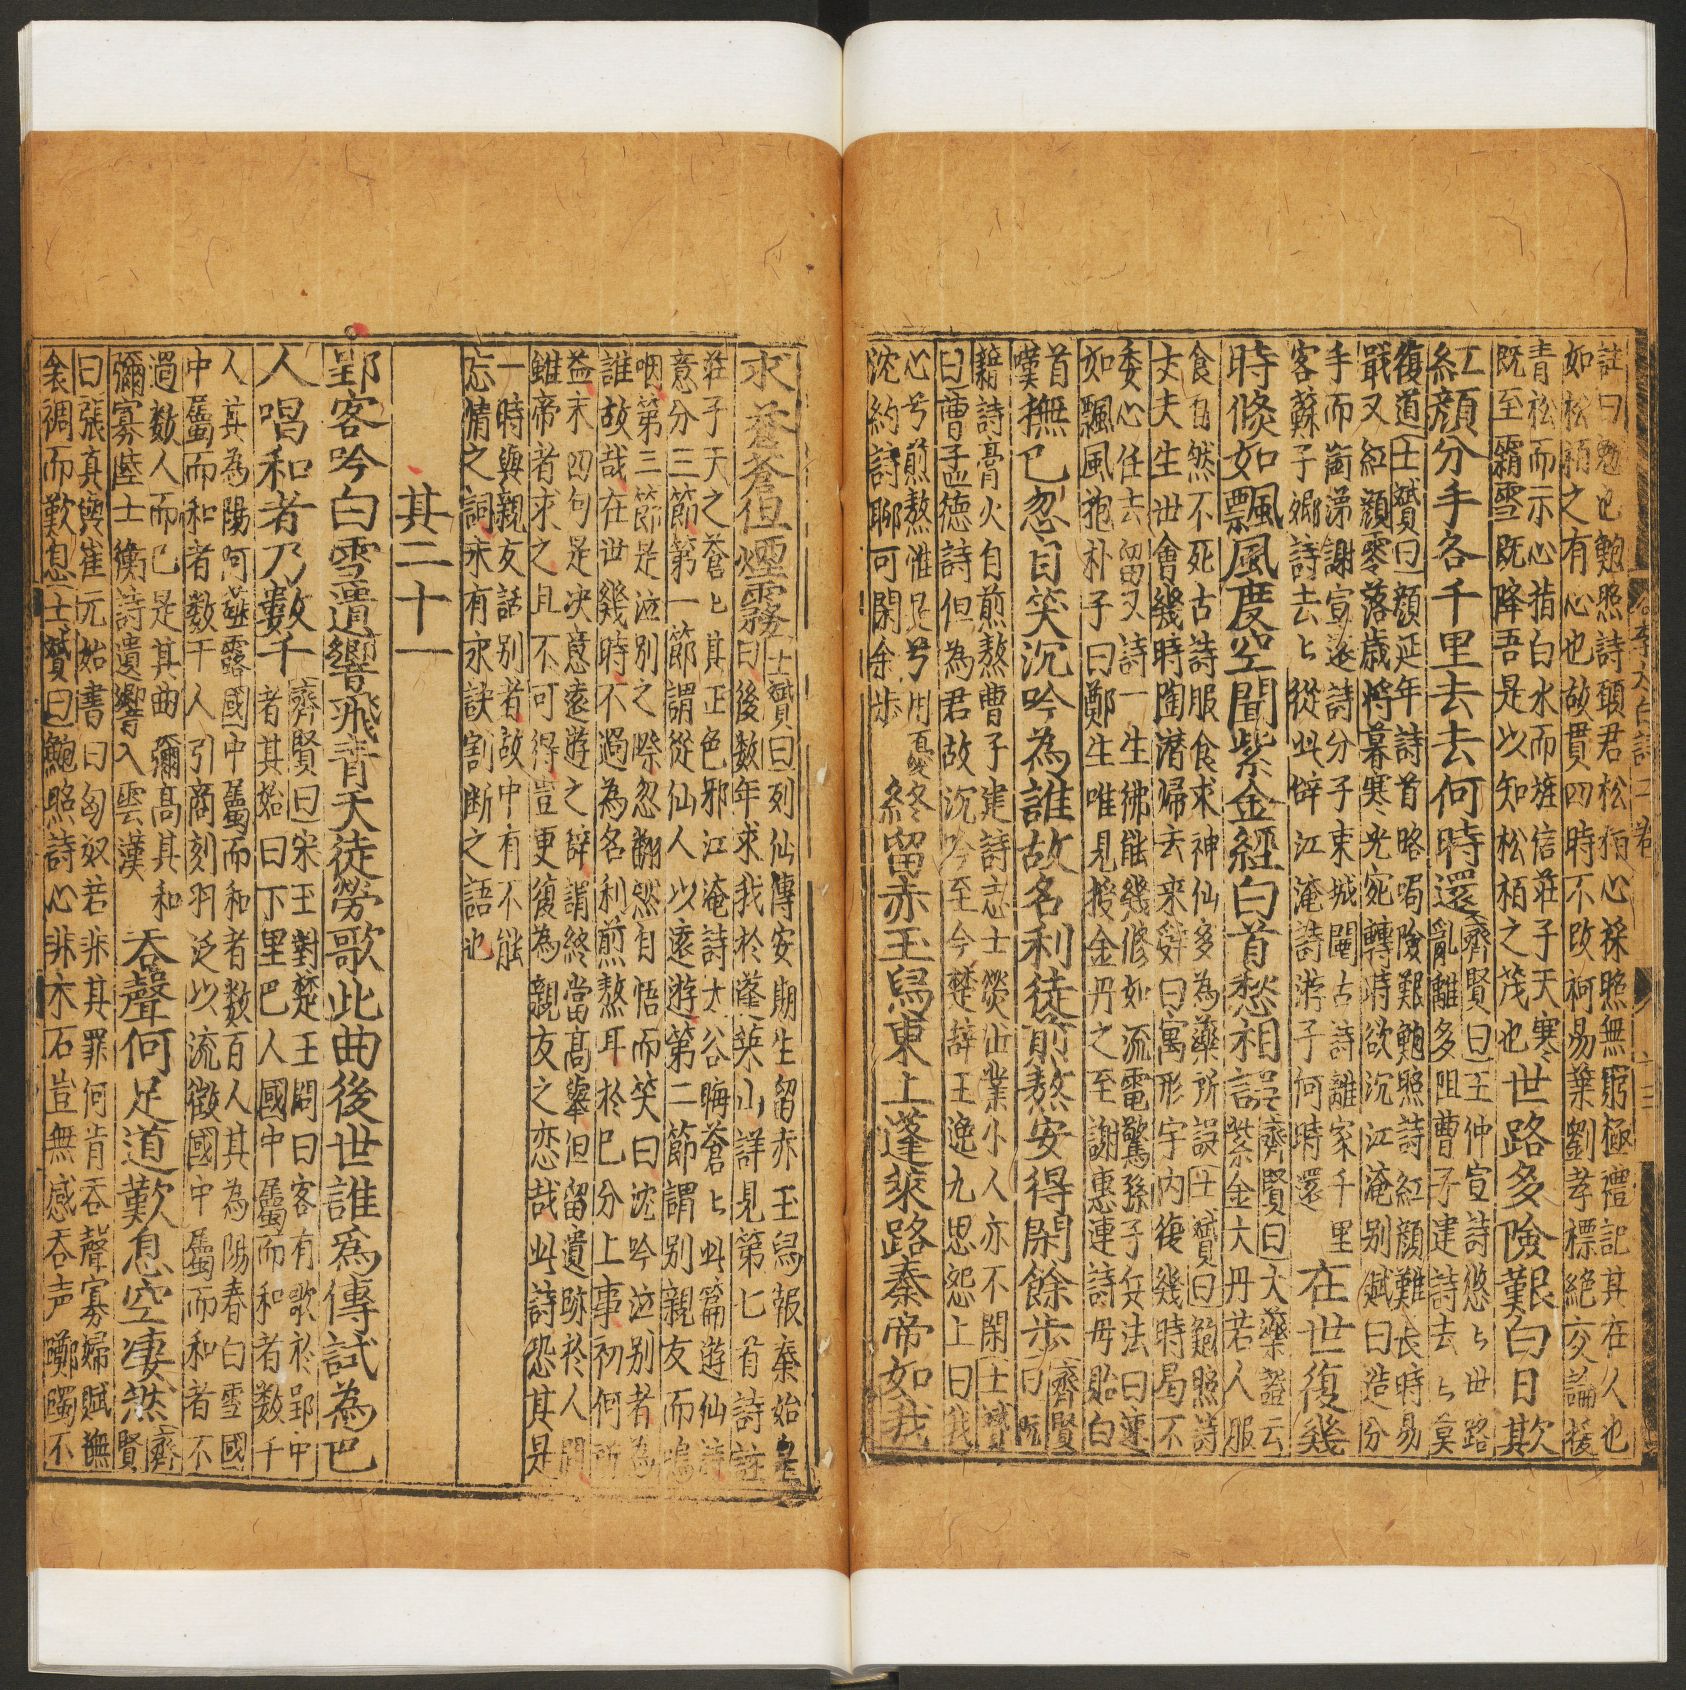 註曰勉也鮑照詩頭君松栢心採照無窮極禮記其在人也
如松栢之有心也故貫四時不改柯易葉劉孝標絕交論援
青松而示心指白水而旌信莊子天寒
既至霜雪既降吾是以知松栢之茂也
世路多險艱白日欺
紅顔分手各千里去去何時還
齊賢曰王仲宣詩悠ヒ世路
亂離多阻曹子建詩去ヒ莫
復道士贇曰顔延年詩首路跼險艱鮑照詩紅顔難長時易
戢又紅顔零落歳将暮寒光宛轉時欲沉江淹别賦曰造分
手而銜涕謝宣遠詩分手東城闉古詩離家千里
客蘇子卿詩去ヒ從此辝江淹詩游子何時還
在世復幾
時倐如飄風度空聞紫金經白首愁相誤
齊賢曰大藥證云
紫金大丹若人服
食自然不死古詩服食求神仙多為藥所誤士贇曰鮑照詩
丈夫生世會幾時陶潛歸去来辝曰寓形宇内復幾時曷不
委心任去留又詩一生彿能幾倐如流電驚孫子兵法曰速
如飄風抱朴子曰鄭生唯見授金丹之至謝惠連詩毋貽白
首
嘆
撫已忽自笑沉吟為誰故名利徒煎熬安得閑餘步
齊賢
曰
藉詩膏火自煎熬曹子建詩志士營世業小人亦不閑士贇
曰曹孟德詩但為君故沉吟至今楚辞王逸九思怨上曰我
心兮煎熬惟是兮用憂
沈約詩聊可閑余步
終留赤玉舄東上蓬萊路秦帝如我
李太白詩二卷
十三
求蒼蒼但煙霧
士贇曰列仙傳安期生留赤玉舄報秦始皇
曰後数年求我於蓬萊山詳見第七首詩註
莊子天之蒼ヒ其正色邪江淹詩太谷晦蒼ヒ此篇遊仙詩
意分三節第一節謂從仙人以遠遊第二節謂别親友而嗚
咽第三節是泣别之際忽翻然自悟而笑曰沈吟泣别者為
誰故哉在世幾時不過為名利煎熬耳於已分上事初何所
益末四句是决意遠遊之辭謂終當髙舉但留遺跡於人間
雖帝者求之且不可得豈更復為親友之恋哉此詩恐其是
一時與親友話别者故中有不能
忘情之詞末有永訣割断之語也
其二十一
郢客吟白雪遺響飛青天徒勞歌此曲後世誰爲傳試為巴
人唱和者乃數千
齊賢曰宋玉對楚王問曰客有歌於郢中
者其始曰下里巴人國中屬而和者数千
人其為陽阿薤露國中屬而和者数百人其為陽春白雪國
中屬而和者数十人引商刻羽泛以流徵國中屬而和者不
過数人而已是其曲彌高其和
彌寡陸士衡詩遺響入雲漢
吞聲何足道歎息空凄然
齊
賢
曰張真崔元始書曰匈奴若非其罪何肯吞聲寡婦賦撫
衾裯而歎息士贇曰鮑照詩心非木石豈無感吞声躑躅不